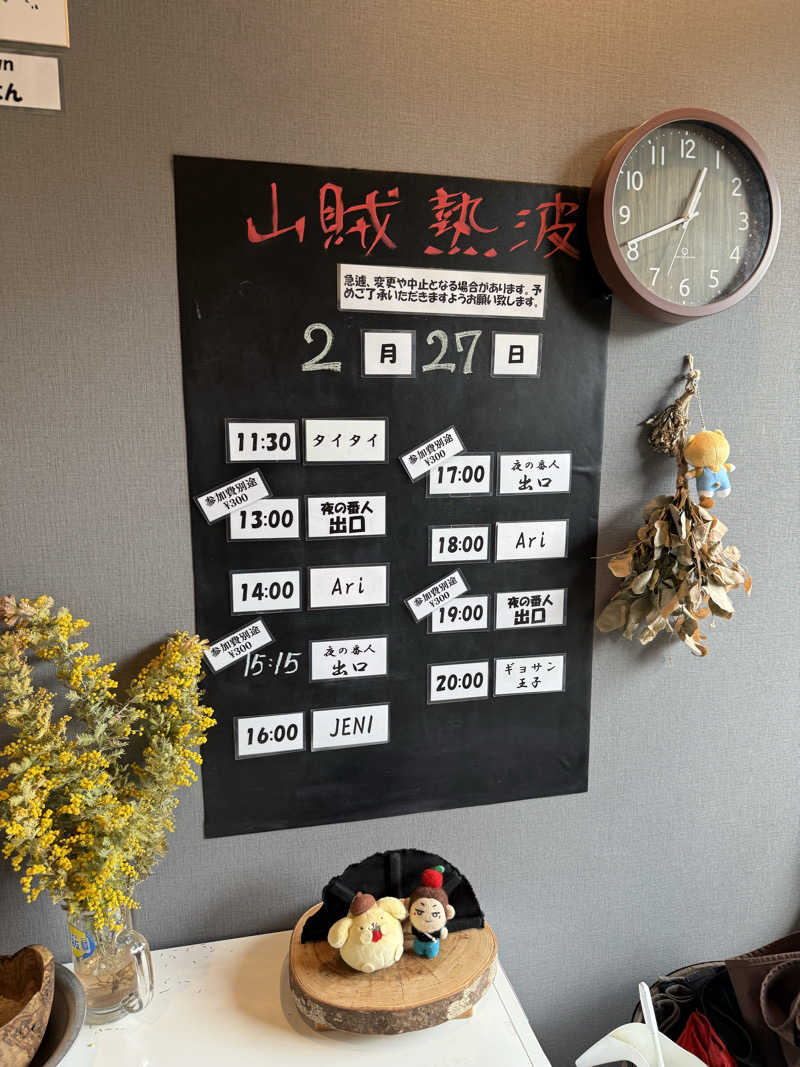 wn
はん
山賊 熱波
急遽、変更や中止となる場合があります。予
めご了承いただきますようお願い致します。
2 月 27 日
11:30 タイタイ
参加費別途
¥300
13:00 夜の番人
出口
14:00 Ari
参加費別途
¥300
15:15 夜の番人
出口
16:00 JENI
参加費別途
¥300
17:00 夜の番人
出口
18:00 Ari
参加費別途
¥300
19:00 夜の番人
出口
20:00 ギョサン
王子
12
1
2
3
4
5
6
7
8
9
10
11